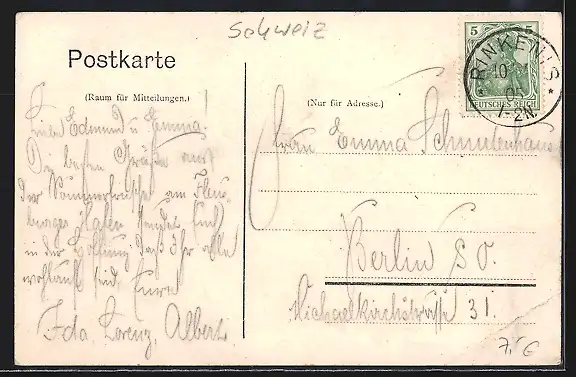 Schweiz
Postkarte
(Raum für Mitteilungen.)
(Nur für Adresse.)
5 5
DEUTSCHES REICH
* RINKENIS *
10
05
1-2N.
Lieber Edmund u. Emma!
Die besten Grüße aus
der Sommerfrische am Flens-
burger Hafen sendet Euch
in der Hoffnung daß Ihr alle
wohlauf seid, Eure
Ida, Lorenz, Albert
Frau Emma
Berlin SO.
Michaelkirchstrasse 31.